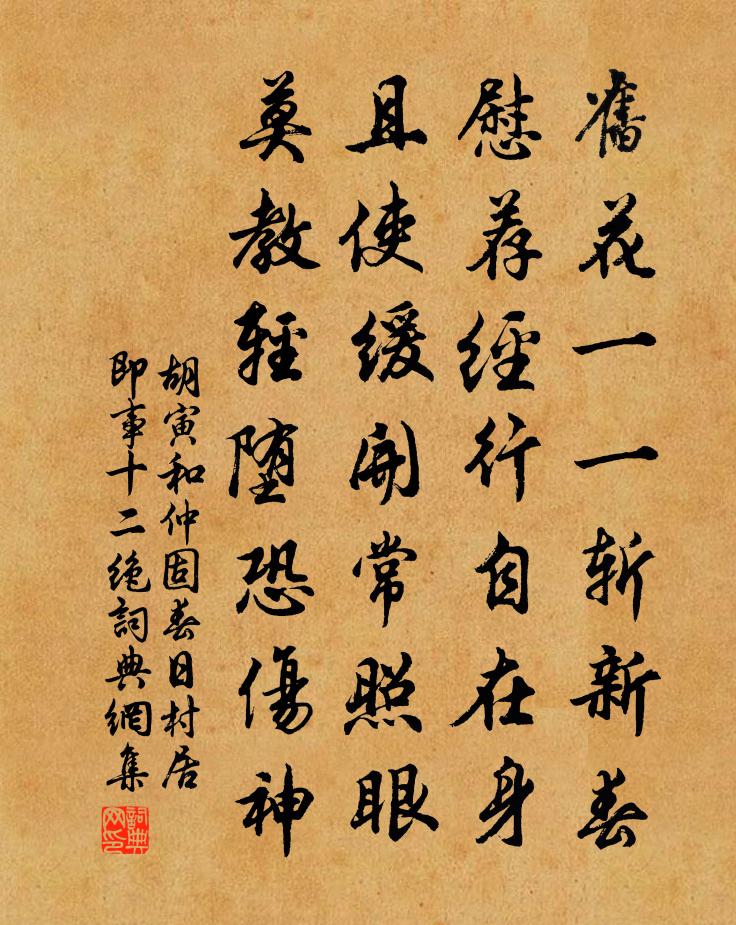 舊花一一斬新春
慰荐經行自在身
且使緩開常照眼
莫教輕堕恐傷神
胡寅和仲固春日村居
即事十二絶詞典網集
詞典网印